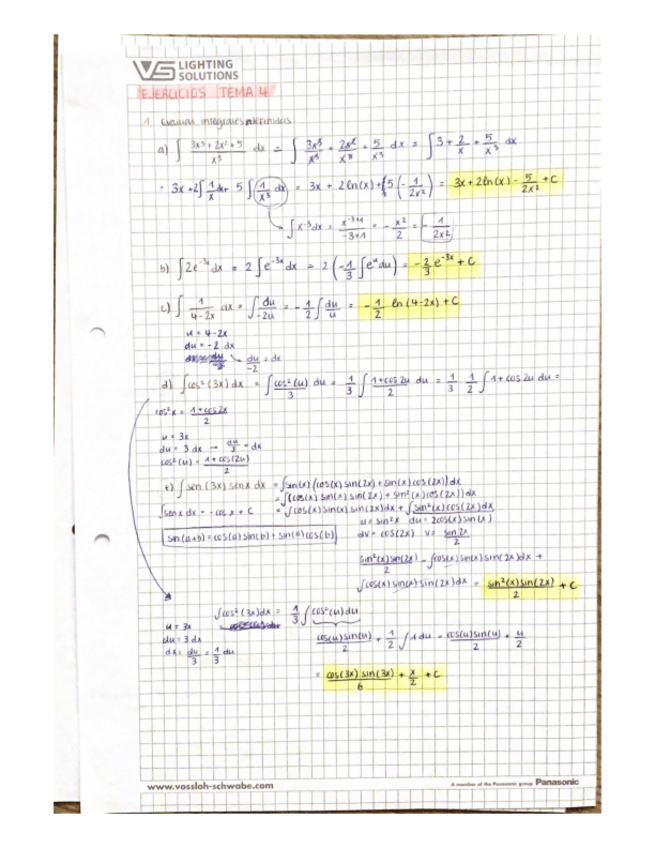 VS LIGHTING SOLUTIONS
EJERCICIOS TEMA 4
1. Evaluar integrales indefinidas
a) ∫ (3x³ + 2x² + 5)/x³ dx = ∫ 3x³/x³ + 2x²/x³ + 5/x³ dx = ∫ 3 + 2/x + 5/x³ dx
= 3x + 2∫ 1/x dx + 5 ∫ 1/x³ dx = 3x + 2 ln(x) + 5 (-1/2x²) = 3x + 2 ln(x) - 5/2x² + C
∫ x⁻³ dx = x⁻³⁺¹/-3+1 = - x²/2 = - 1/2x²
b) ∫ 2e⁻³ˣ dx = 2 ∫ e⁻³ˣ dx = 2 (-1/3 ∫ eᵘ du) = -2/3 e⁻³ˣ + C
c) ∫ 1/(4-2x) dx = ∫ du/-2u = -1/2 ∫ du/u = -1/2 ln (4-2x) + C
u = 4-2x
du = -2 dx
du/-2 = dx
d) ∫ cos² (3x) dx = ∫ cos² (u)/3 du = 1/3 ∫ (1+cos 2u)/2 du = 1/3 1/2 ∫ 1+cos 2u du =
cos²x = (1+cos 2x)/2
u = 3x
du = 3 dx → du/3 = dx
cos² (u) = (1+cos(2u))/2
e) ∫ sen (3x) sen x dx = ∫ sin(x) (cos(x) sin(2x) + sin(x) cos(2x)) dx
= ∫ (cos(x) sin(x) sin(2x) + sin²(x) cos(2x)) dx
∫ sen x dx = -cos x + C = ∫ cos(x) sin(x) sin(2x) dx + ∫ sin²(x) cos(2x) dx
u = sin²x du = 2cos(x) sin(x)
sin(a+b) = cos(a) sin(b) + sin(a) cos(b) dv = cos(2x) v = sin 2x/2
sin²(x) sin(2x)/2 - ∫ cos(x) sin(x) sin(2x) dx +
∫ cos(x) sin(x) sin(2x) dx = sin²(x) sin(2x)/2 + C
∫ cos² (3x) dx = 1/3 ∫ cos² (u) du
u = 3x
du = 3 dx
dx = du/3 = 1/3 du
cos(u) sin(u)/2 + 1/2 ∫ 1 du = cos(u) sin(u)/2 + u/2
= cos(3x) sin(3x)/6 + x/2 + C
www.vossloh-schwabe.com A member of the Panasonic group Panasonic